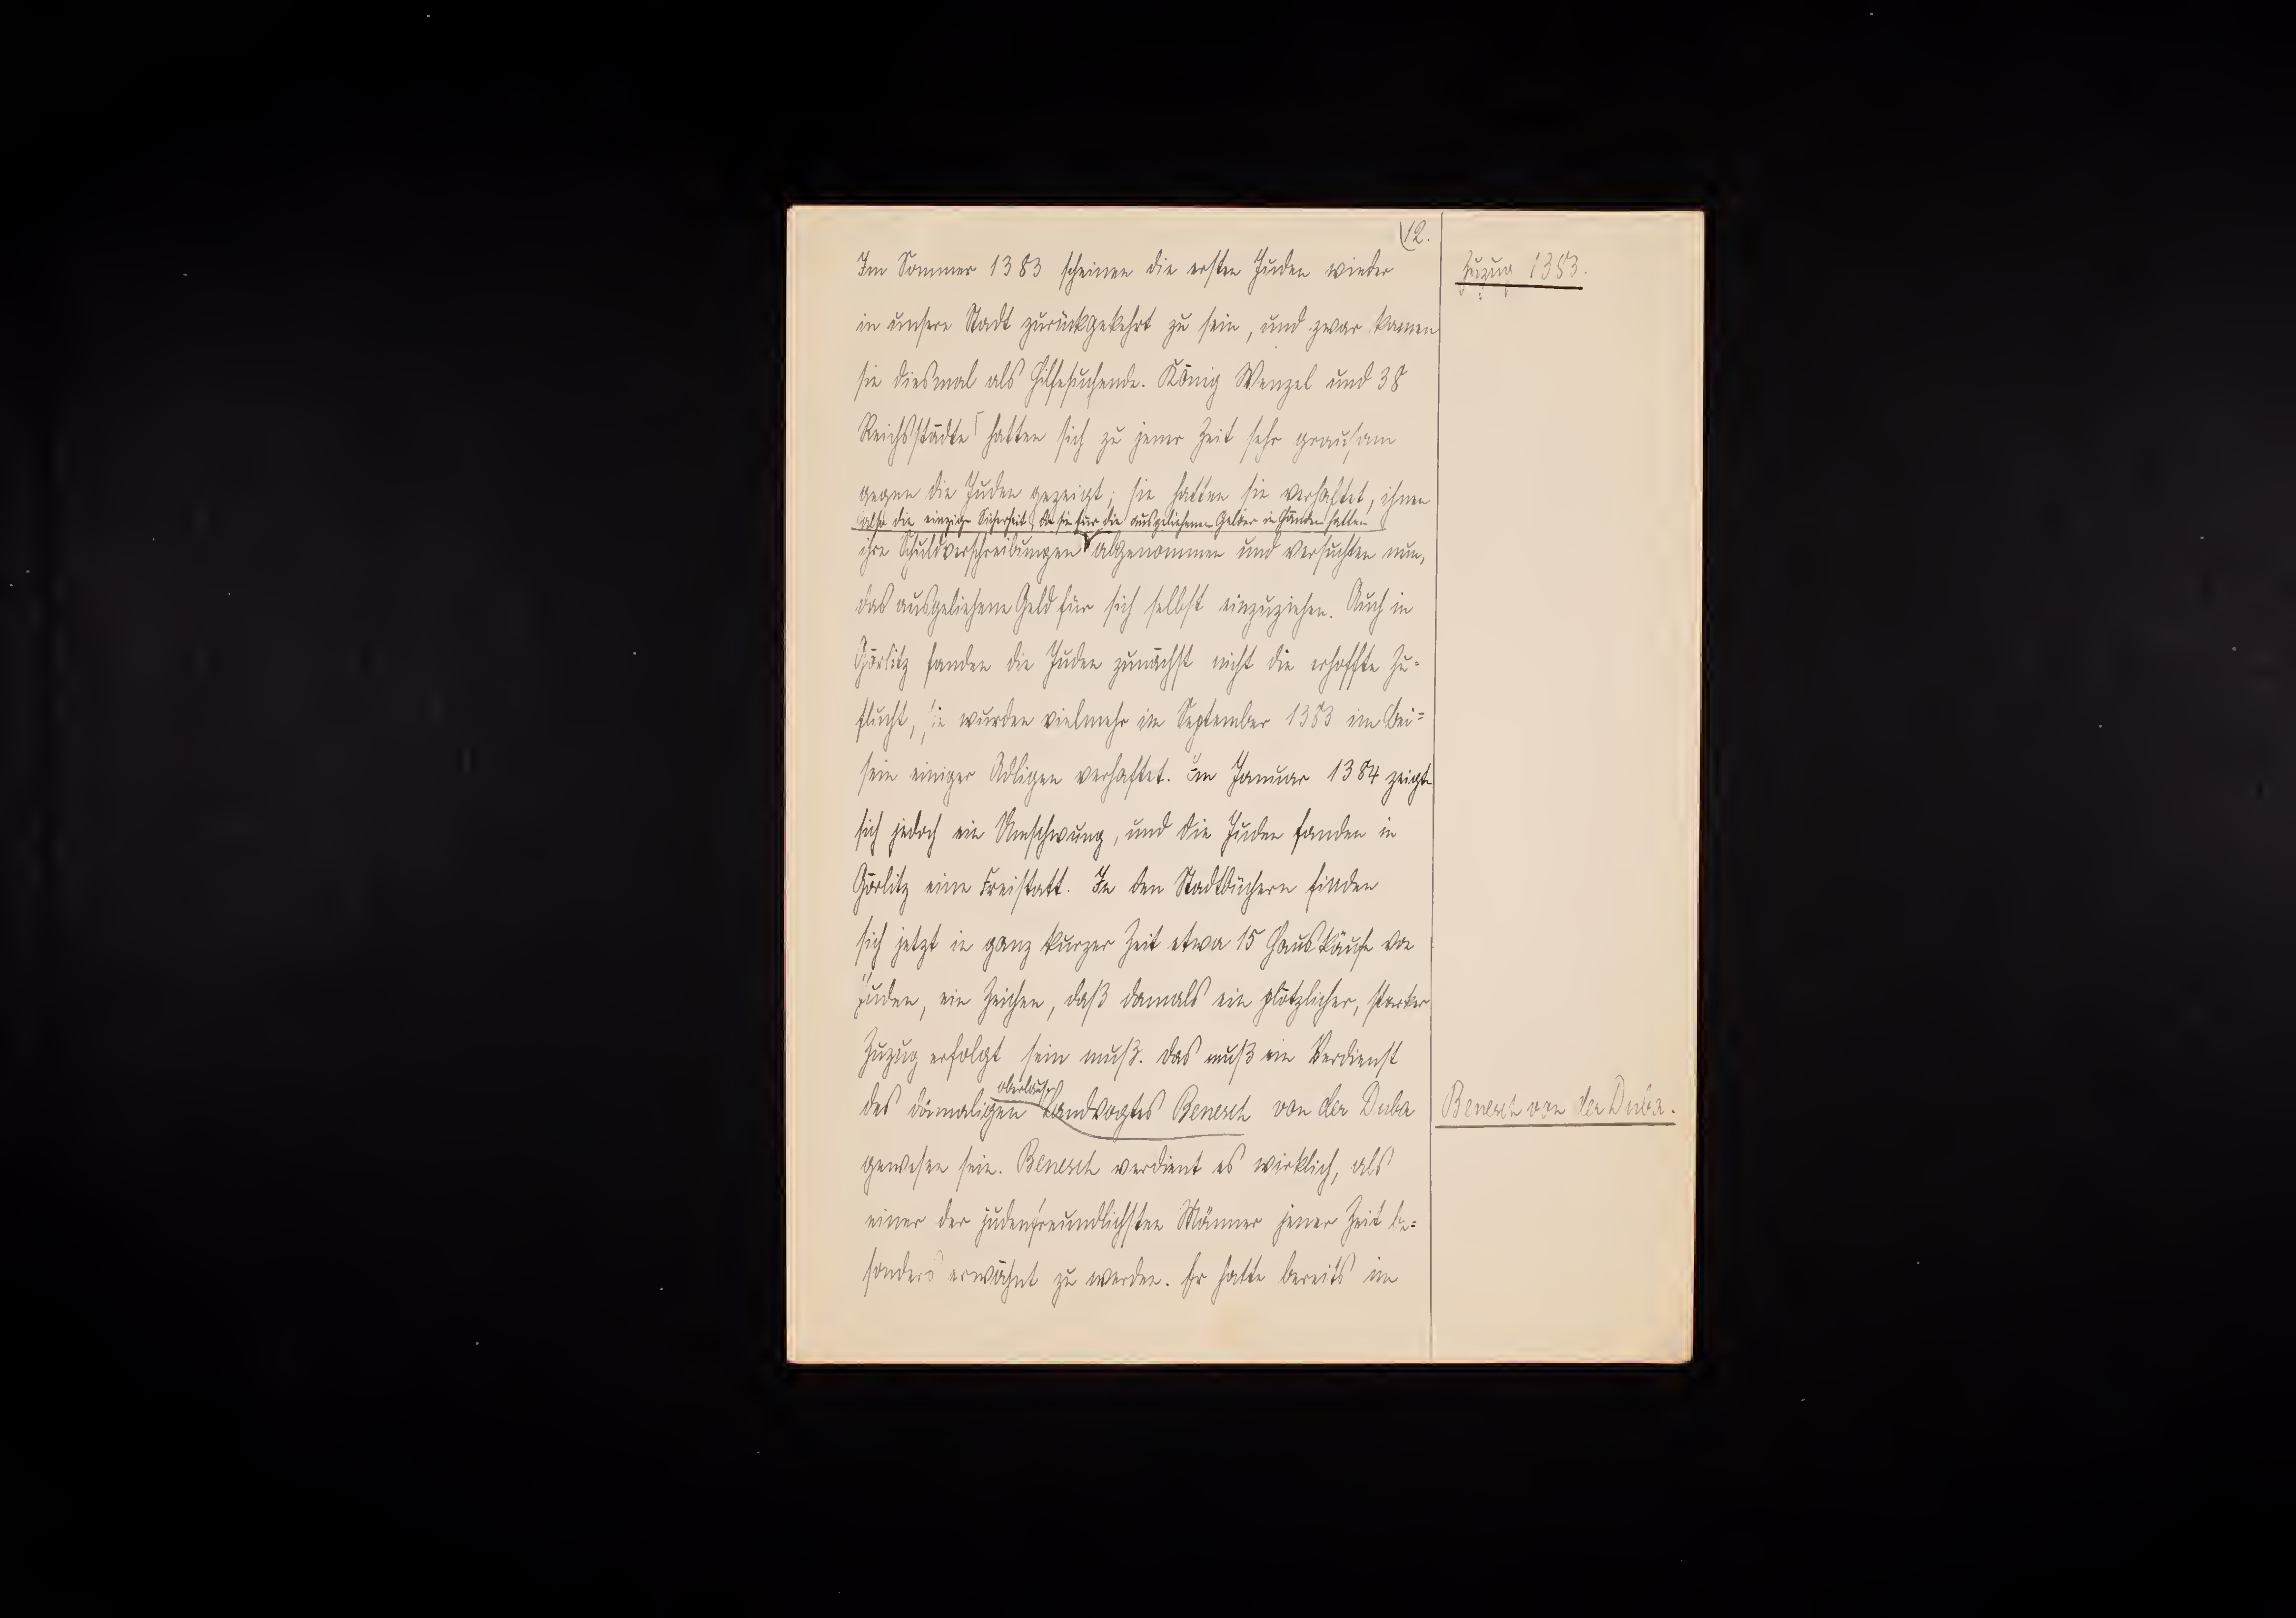 12.
Im Sommer 1383 scheinen die ersten Juden wieder
Zuzug 1383.
in unsere Stadt zurückgekehrt zu sein, und zwar kamen
sie diesmal als Hilfesuchende. König Wenzel und 38
Reichsstädte hatten sich zu jener Zeit sehr grausam
gegen die Juden gezeigt; sie hatten sie verhaftet, ihnen
also die einzige Sicherheit, die sie für die ausgeliehenen Gelder in Händen hatten
ihre Schuldverschreibungen abgenommen und versuchten nun,
das ausgeliehene Geld für sich selbst einzuziehen. Auch in
Görlitz fanden die Juden zunächst nicht die erhoffte Zu-
flucht, sie wurden vielmehr im September 1383 im Bei-
sein einiger Adligen verhaftet. Im Januar 1384 zeigte
sich jedoch ein Umschwung, und die Juden fanden in
Görlitz eine Freistatt. In den Stadtbüchern finden
sich jetzt in ganz kurzer Zeit etwa 15 Hauskäufe von
Juden, ein Zeichen, daß damals ein plötzlicher, starker
Zuzug erfolgt sein muß. Das muß ein Verdienst
oberlaus.
des damaligen Landvogtes Benesch von der Duba
Benesch von der Duba.
gewesen sein. Benesch verdient es wirklich, als
einer der judenfreundlichsten Männer jener Zeit be-
sonders erwähnt zu werden. Er hatte bereits im